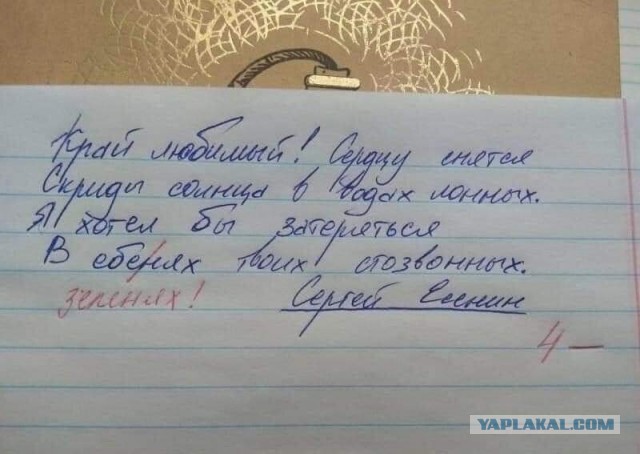 Край любимый! Сердцу снятся
Скирды солнца в водах лонных.
Я хотел бы затеряться
В ебенях твоих стозвонных.
зеленях! Сергей Есенин
4 —
YAPLAKAL.COM